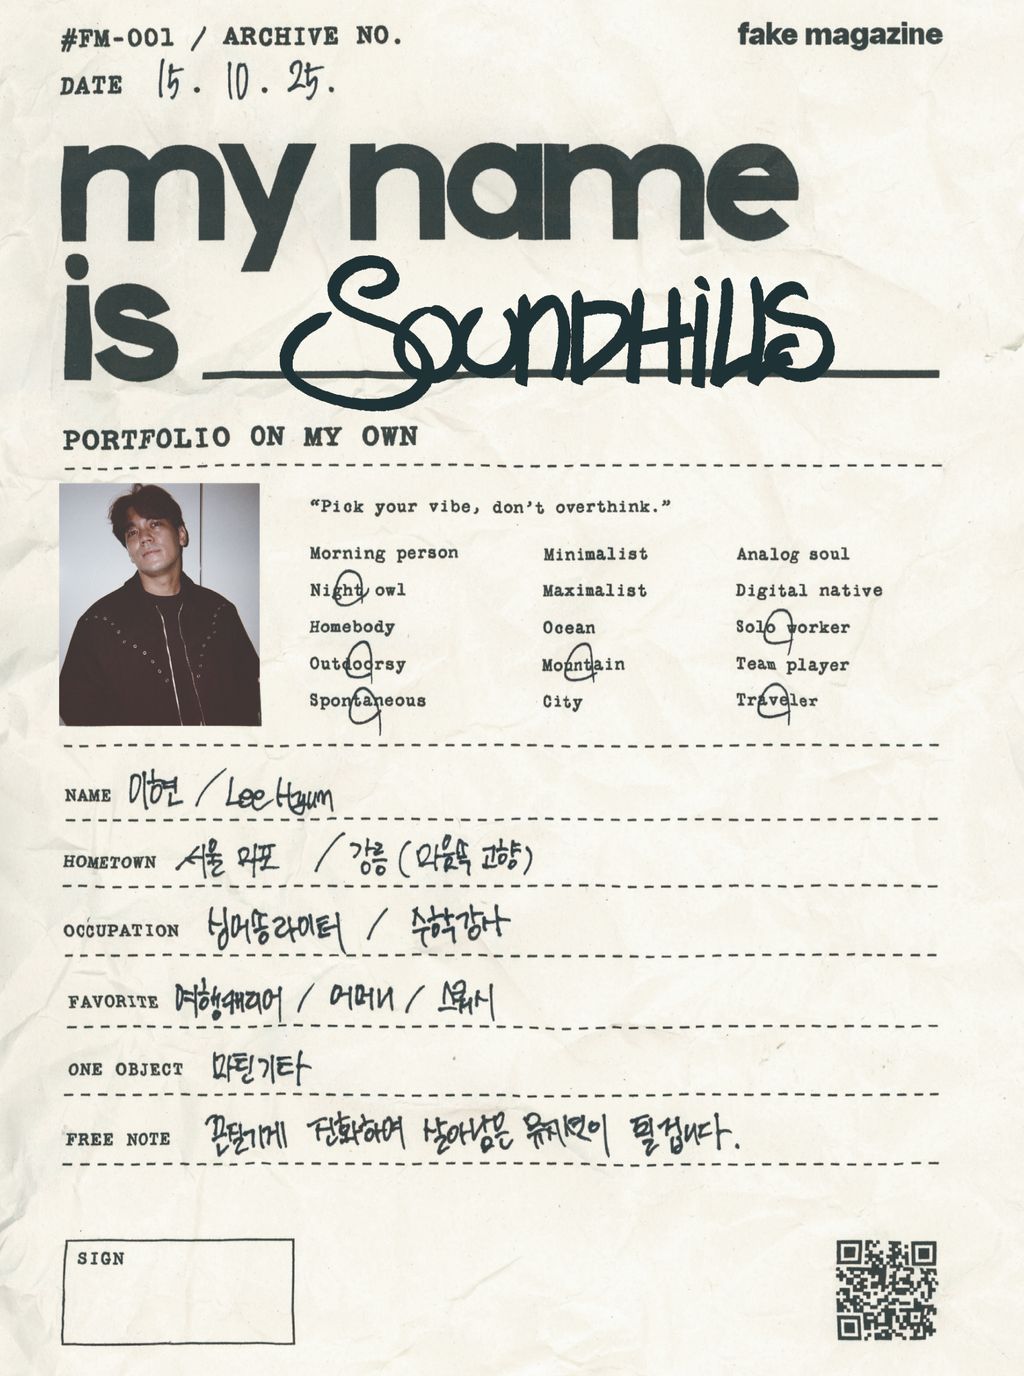 #FM-001 / ARCHIVE NO.
fake magazine
DATE 15. 10. 25.
my name
is SOUNDHills
PORTFOLIO ON MY OWN
“Pick your vibe, don't overthink.”
Morning person Minimalist Analog soul
Night owl Maximalist Digital native
Homebody Ocean Solo worker
Outdoorsy Mountain Team player
Spontaneous City Traveler
NAME 이현 / Lee Hyun
HOMETOWN 서울 마포 / 강릉 (마음속 고향)
OCCUPATION 싱어송라이터 / 수학강사
FAVORITE 여행캐리어 / 어머니 / 스쿼시
ONE OBJECT 마틴기타
FREE NOTE 끈덜기게 진화하여 살아남은 뮤지션이 될겁니다.
SIGN